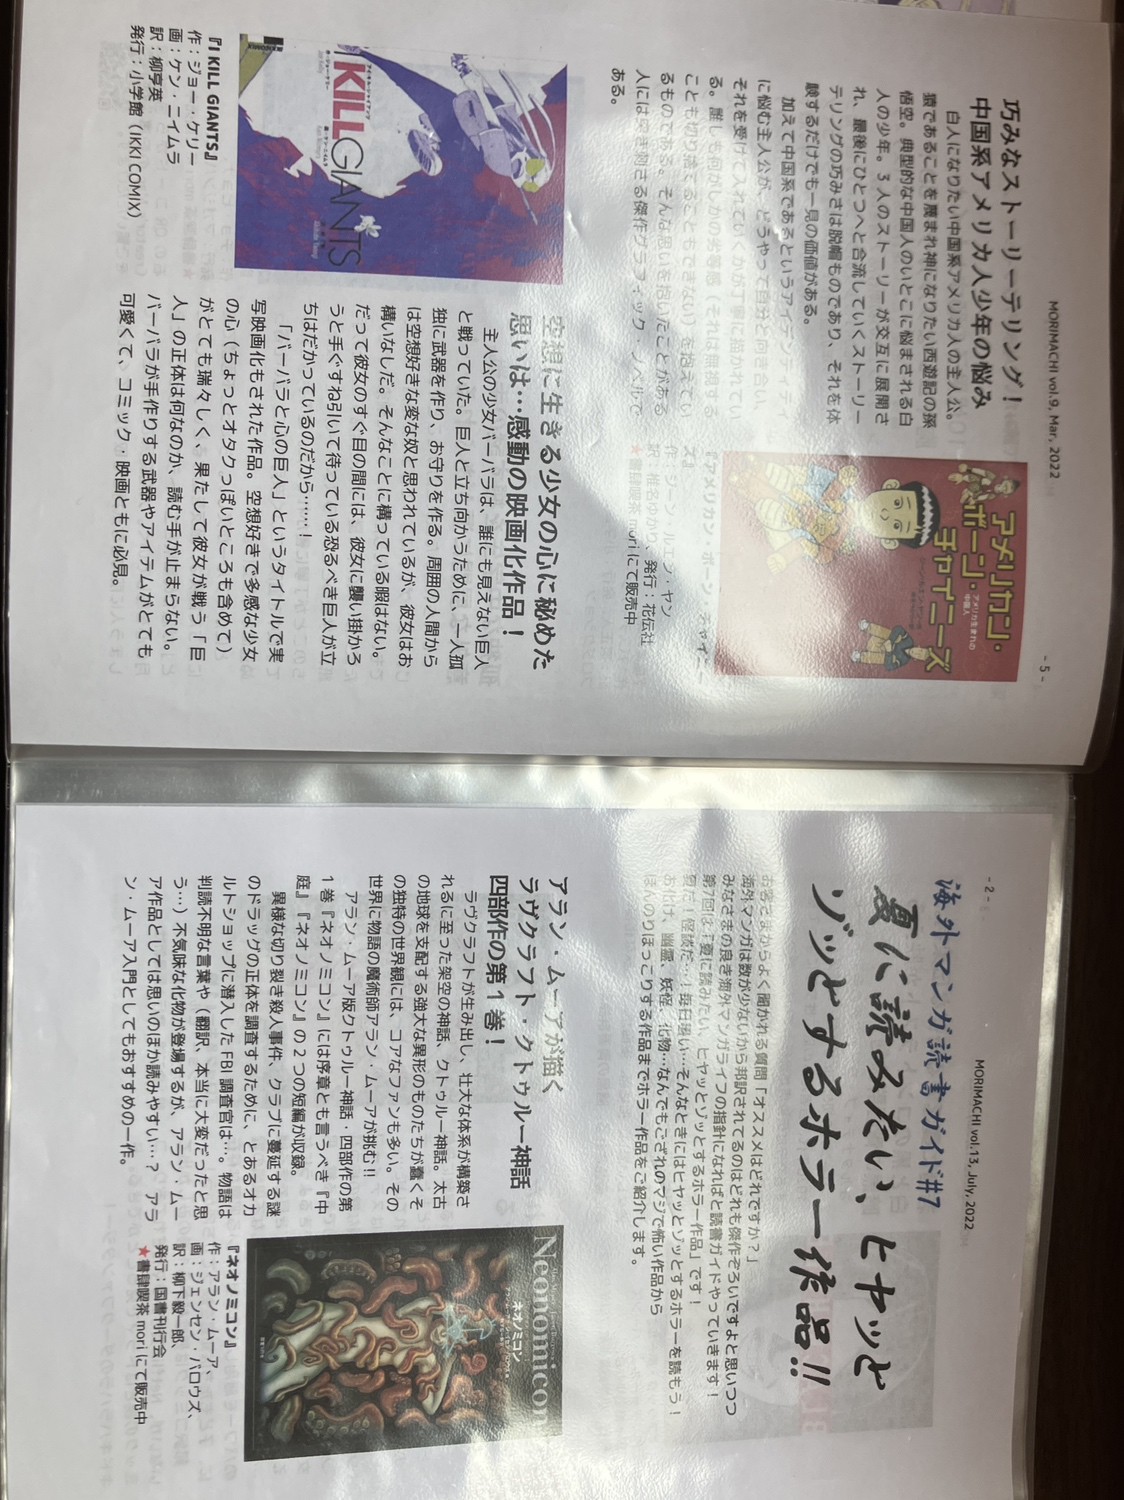 MORIMACHI vol.9, Mar, 2022
- 5 -
巧みなストーリーテリング！
中国系アメリカ人少年の悩み
白人になりたい中国系アメリカ人の主人公。
猿であることを蔑まれ神になりたい西遊記の孫
悟空。典型的な中国人のいとこに悩まされる白
人の少年。3人のストーリーが交互に展開さ
れ、最後にひとつへと合流していくストーリー
テリングの巧みさは脱帽ものであり、それを体
験するだけでも一見の価値がある。
加えて中国系であるというアイデンティティ
に悩む主人公が、どうやって自分と向き合い、
それを受けて入れていくかが丁寧に描かれてい
る。誰しも何がしかの劣等感（それは無視する
ことも切り捨てることもできない）を抱えてい
るものである。そんな思いを抱いたことがある
人には突き刺さる傑作グラフィック・ノベルで
ある。
アメリカン・
ボーン・
チャイニーズ
アメリカ生まれの
中国人
『アメリカン・ボーン・チャイニー
ズ』
作：ジーン・ルエン・ヤン
訳：椎名ゆかり、発行：花伝社
★書肆喫茶 mori にて販売中
I KILL GIANTS
『I KILL GIANTS』
作：ジョー・ケリー
画：ケン・ニイムラ
訳：柳亨英
発行：小学館（IKKI COMIX）
空想に生きる少女の心に秘めた
思いは…感動の映画化作品！
主人公の少女バーバラは、誰にも見えない巨人
と戦っていた。巨人と立ち向かうために、一人孤
独に武器を作り、お守りを作る。周囲の人間から
は空想好きな変な奴と思われているが、彼女はお
構いなしだ。そんなことに構っている暇はない。
だって彼女のすぐ目の間には、彼女に襲い掛かろ
うと手ぐすね引いて待っている恐るべき巨人が立
ちはだかっているのだから……！
「バーバラと心の巨人」というタイトルで実
写映画化もされた作品。空想好きで多感な少女
の心（ちょっとオタクっぽいところも含めて）
がとても瑞々しく、果たして彼女が戦う「巨
人」の正体は何なのか、読む手が止まらない。
バーバラが手作りする武器やアイテムがとても
可愛くて、コミック・映画ともに必見。
- 2 -
MORIMACHI vol.13, July, 2022
海外マンガ読書ガイド#7
夏に読みたい、ヒヤッと
ゾッとするホラー作品!!
お客さまからよく聞かれる質問「オススメはどれですか？」
海外マンガは数が少ないから邦訳されてるのはどれも傑作ぞろいですよと思いつつ
みなさまの良き海外マンガライフの指針になればと読書ガイドやっていきます！
第7回は「夏に読みたい、ヒヤッとゾッとするホラー作品」です！
夏だ！怪談だ…！毎日暑い…そんなときにはヒヤッとゾッとするホラーを読もう！
おばけ、幽霊、妖怪、化物…なんでもござれのマジで怖い作品から
ほんのりほっこりする作品までホラー作品をご紹介します。
アラン・ムーアが描く
ラヴクラフト・クトゥルー神話
四部作の第1巻！
ラヴクラフトが生み出し、壮大な体系が構築さ
れるに至った架空の神話、クトゥルー神話。太古
の地球を支配する強大な異形のものたちが蠢くそ
の独特の世界観には、コアなファンも多い。その
世界に物語の魔術師アラン・ムーアが挑む!!
アラン・ムーア版クトゥルー神話・四部作の第
1巻『ネオノミコン』には序章とも言うべき『中
庭』『ネオノミコン』の2つの短編が収録。
異様な切り裂き殺人事件、クラブに蔓延する謎
のドラッグの正体を調査するために、とあるオカ
ルトショップに潜入したFBI調査官は…。物語は
判読不明な言葉や（翻訳、本当に大変だったと思
う…）不気味な化物が登場するが、アラン・ムー
ア作品としては思いのほか読みやすい…？ アラ
ン・ムーア入門としてもおすすめの一作。
Neonomicon
ネオノミコン
『ネオノミコン』
作：アラン・ムーア、
画：ジェンセン・バロウズ、
訳：柳下毅一郎、
発行：国書刊行会
★書肆喫茶 mori にて販売中